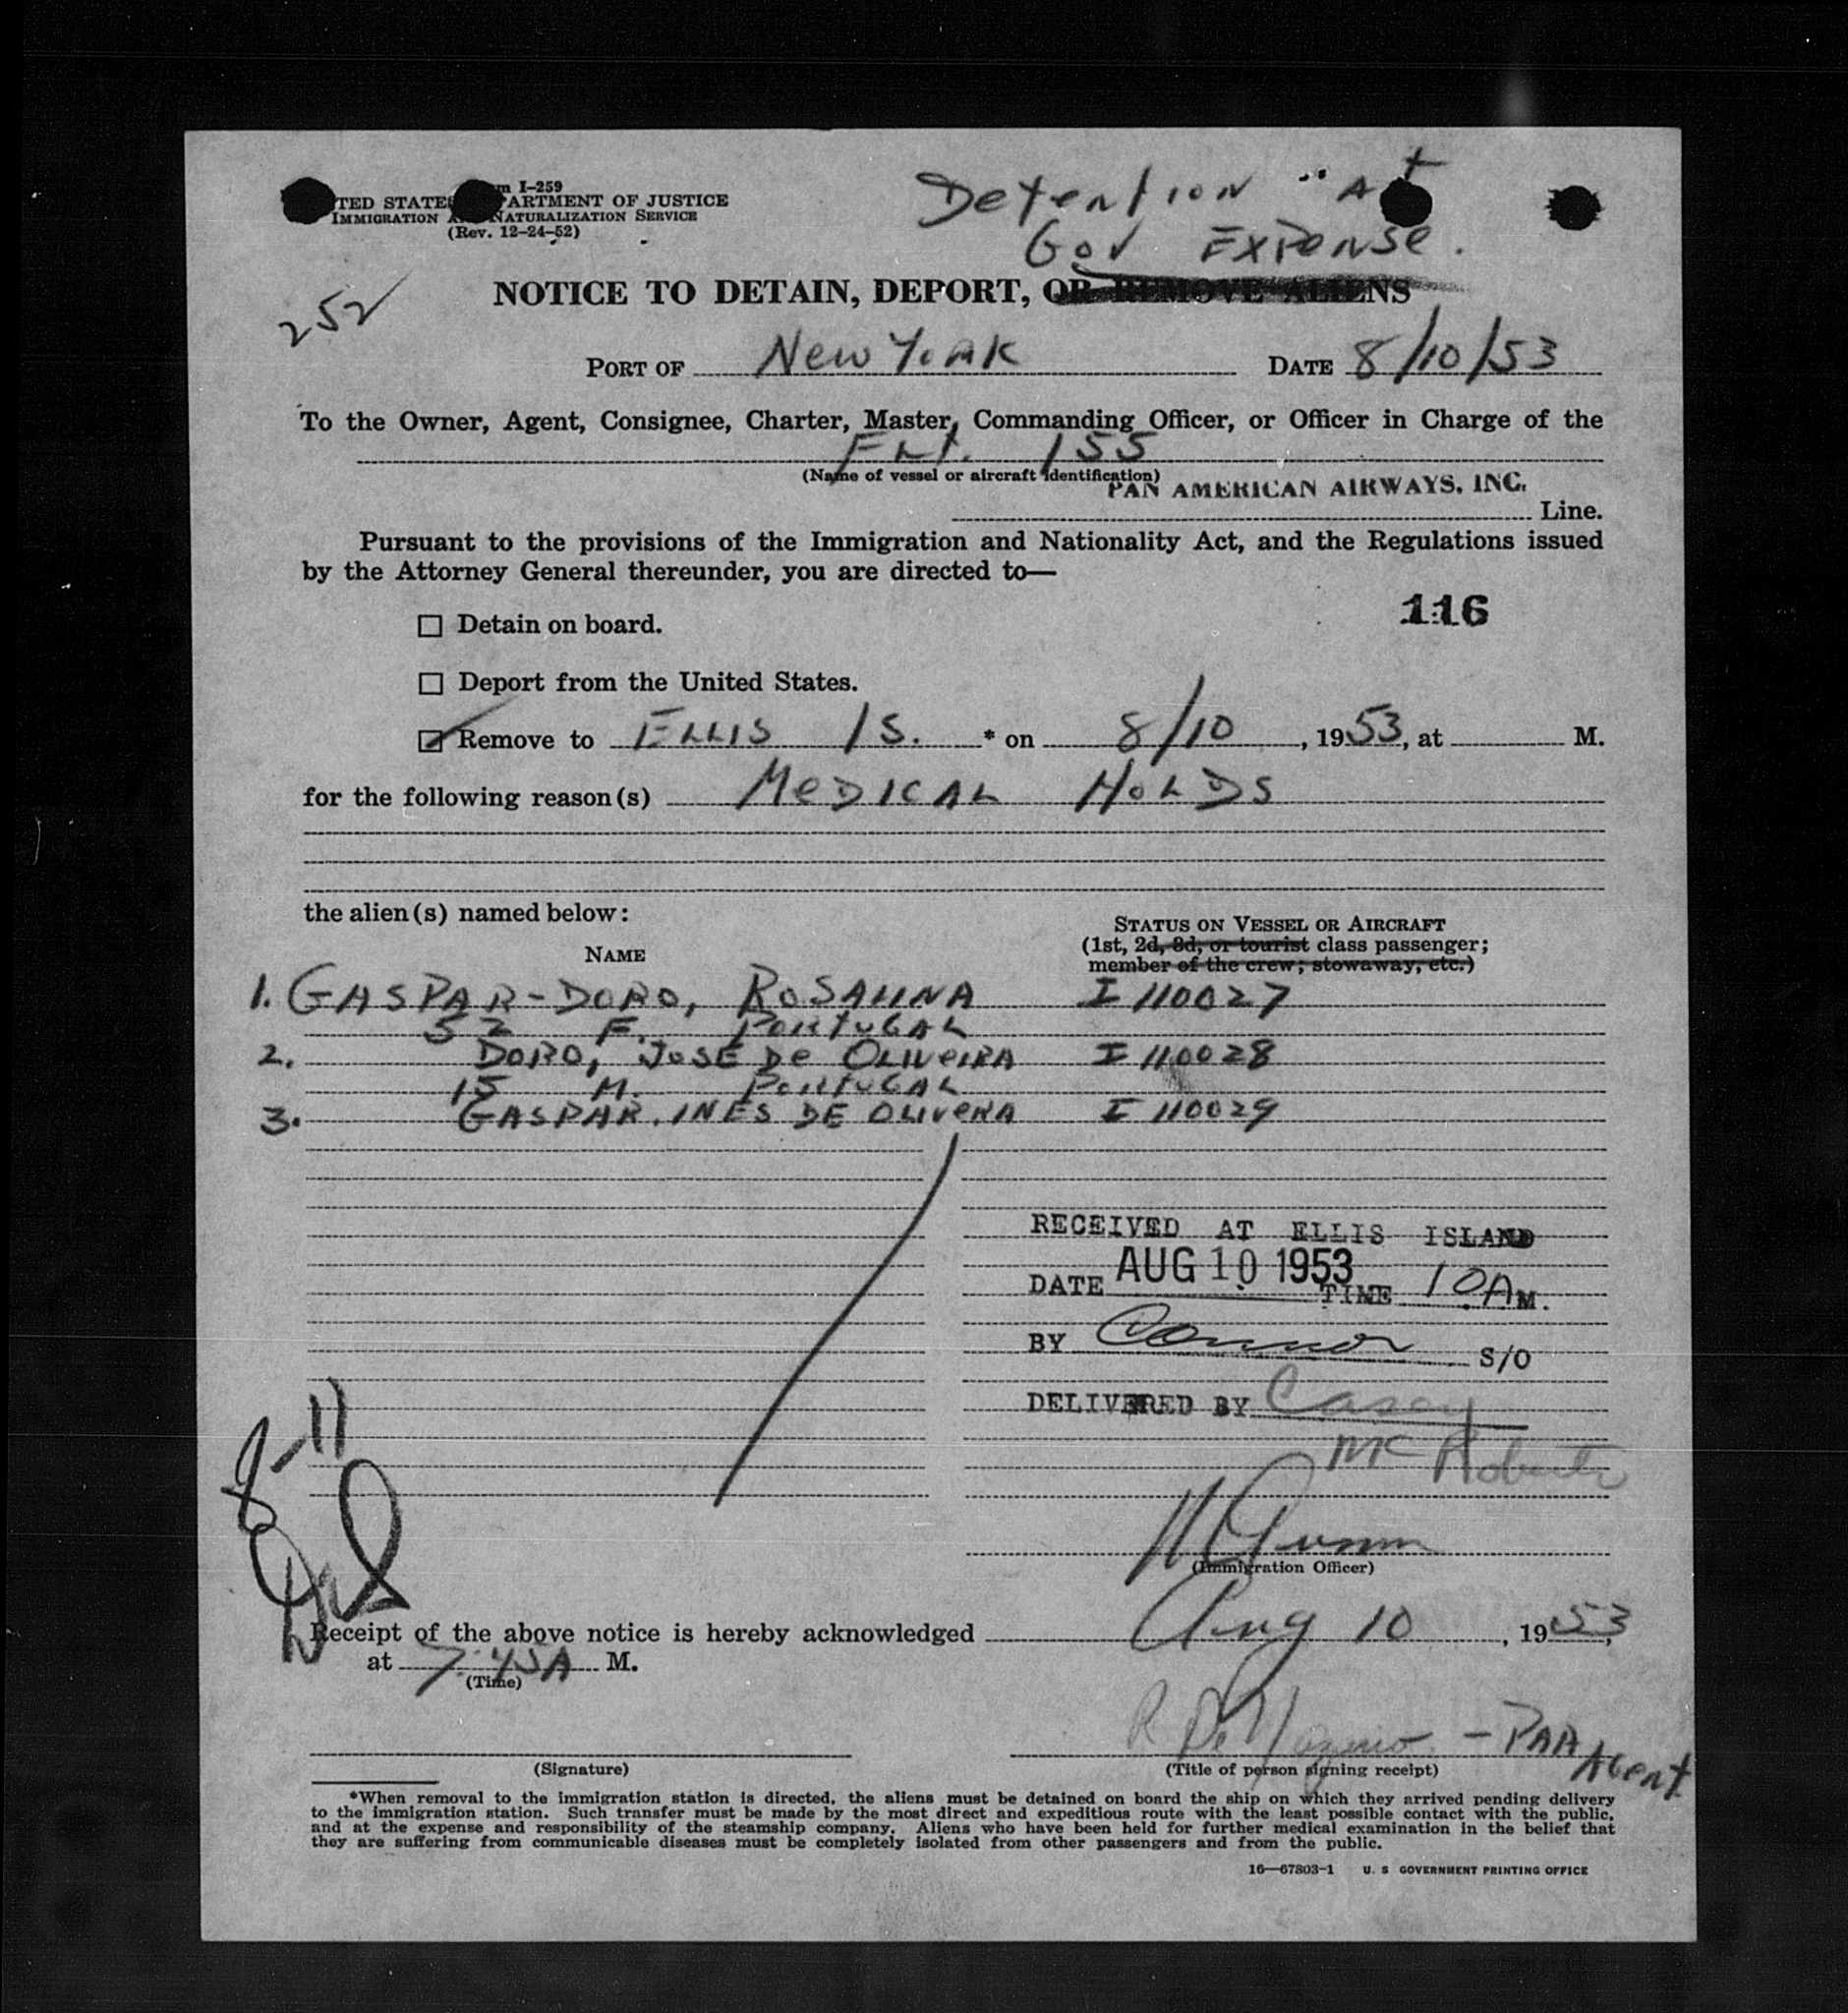 Form I-259
UNITED STATES DEPARTMENT OF JUSTICE
IMMIGRATION AND NATURALIZATION SERVICE
(Rev. 12-24-52)
Detention at
Gov Expense.
252
NOTICE TO DETAIN, DEPORT, OR REMOVE ALIENS
PORT OF New York DATE 8/10/53
To the Owner, Agent, Consignee, Charter, Master, Commanding Officer, or Officer in Charge of the
FLT. 155
(Name of vessel or aircraft identification)
PAN AMERICAN AIRWAYS, INC.
Line.
Pursuant to the provisions of the Immigration and Nationality Act, and the Regulations issued
by the Attorney General thereunder, you are directed to—
116
☐ Detain on board.
☐ Deport from the United States.
☑ Remove to ELLIS IS. * on 8/10, 1953, at M.
for the following reason(s) MEDICAL HOLDS
the alien(s) named below:
NAME
STATUS ON VESSEL OR AIRCRAFT
(1st, 2d, 3d, or tourist class passenger;
member of the crew; stowaway, etc.)
1. GASPAR-DORO, ROSALINA I 110027
52 F. PORTUGAL
2. DORO, JOSE De OLIVEIRA I 110028
15 M. PORTUGAL
3. GASPAR. INES DE OLIVERA I 110029
RECEIVED AT ELLIS ISLAND
DATE AUG 10 1953 TIME 10AM.
BY Connor S/O
DELIVERED BY Casey
McRoberts
8-11
(Immigration Officer)
Receipt of the above notice is hereby acknowledged Aug 10, 1953,
at 7:45A M.
(Time)
R De - PAA Agent
(Signature)
(Title of person signing receipt)
*When removal to the immigration station is directed, the aliens must be detained on board the ship on which they arrived pending delivery
to the immigration station. Such transfer must be made by the most direct and expeditious route with the least possible contact with the public,
and at the expense and responsibility of the steamship company. Aliens who have been held for further medical examination in the belief that
they are suffering from communicable diseases must be completely isolated from other passengers and from the public.
16—67803-1 U. S GOVERNMENT PRINTING OFFICE